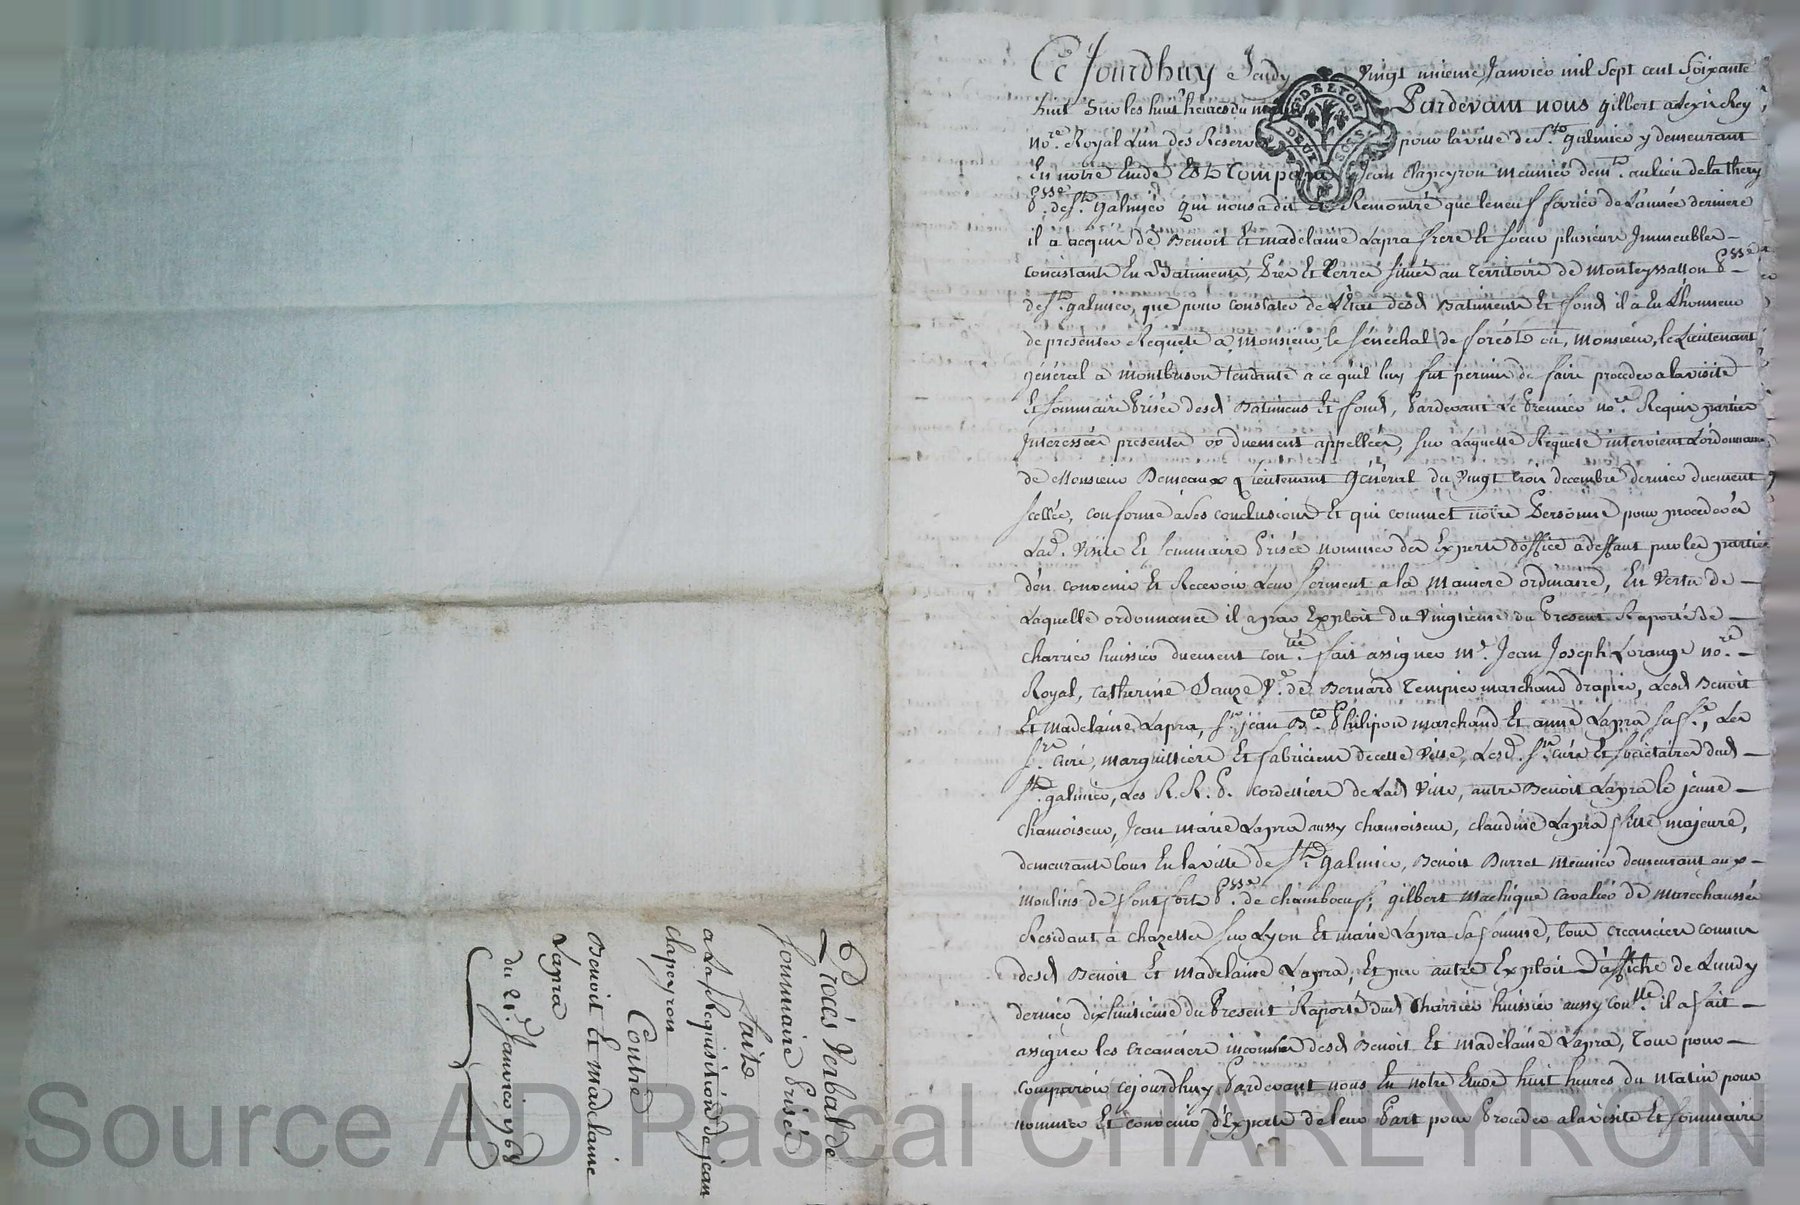 Ce Jourdhuy Jeudy vingt unieme Janvier mil sept cent soixante
huit sur les huit heures du matin Pardevant nous gilbert alexis Rey
no.re Royal L'un des Reservés pour la ville de St. galmier y demeurant
En notre Etude Est Comparu Jean Chapeyron meunier demt. au lieu de la thery
psse. de St. galmier qui nous a dit et Remontré que le neuf fevrier de L'année derniere
il a acquis de Benoit Et madelaine Lapra frere Et soeur plusieurs Immeubles
concistants En Batiments, Prés Et Terres situés au territoire de monteyssallon psse
de St. galmier, que pour constater de L'Etat desd Batiments Et fonds il a Eu L'honneur
de presenter Requete a monsieur le sénéchal de forést ou, monsieur, le Lieutenant
général a montbrison tendante a ce qu'il luy fut permis de faire proceder a la visite
Et sommaire Prisée desd Batiments Et fonds, Pardevant Le Premier no.re Requis parties
Interessées presentes ou duement appellées, sur Laquelle Requete intervient L'ordonnance
de Monsieur Lieutenant Général du vingt trois decembre dernier duement
scellée, conforme a ses conclusions Et qui commet notre Personne pour proceder a
Lad. visite Et sommaire Prisée nommer des Experts d'office a deffaut par les parties
d'en convenir Et Recevoir Leur serment a la maniere ordinaire, En vertu de
Laquelle ordonnance il a par Exploit du vingtieme du Present Raporté de
charrier huissier duement con.lé fait assigner me. Jean Joseph Lorange no.re
Royal, catherine Sauze ve. de Bernard Tempier marchand drapier, Lesd Benoit
Et madelaine Lapra, sr. jean Bte. Philipon marchand Et anne Lapra sa fe., Les
srs. curé, marguilliers Et fabriciens de cette ville, Lesd. srs. curé Et societaires dud
St. galmier, Les R. R. P. cordelliers de Lad ville, autre Benoit Lapra le jeune
chamoiseur, Jean marie Lapra aussy chamoiseur, claudine Lapra fille majeure,
demeurants tous En la ville de St. Galmier, Benoit Burret meunier demeurant aux
moulins de fontfort psse. de chamboeuf, gilbert machique cavalier de marechaussée
Residant a chazelles sur Lyon Et marie Lapra sa femme, tous creanciers connus
desd Benoit Et madelaine Lapra, Et par autre Exploit D'affiche de Lundy
dernier dixhuitieme du Present Raporté dud Charrier huissier aussy con.llé il a fait
assigner les creanciers inconnus desd Benoit Et madelaine Lapra, Tous pour
comparoir cejourdhuy Pardevant nous En notre Etude huit heures du matin pour
nommer Et convenir d'Experts de leur Part pour Proceder a la visite Et sommaire
DE LYON
DEUX SOLS
Procès Verbal de
sommaire Prisée
faite
a La Requisition de jean
chapeyron
Contre
Benoit Et madelaine
Lapra
du 21e. Janvier 1768
Source AD Pascal CHAREYRON